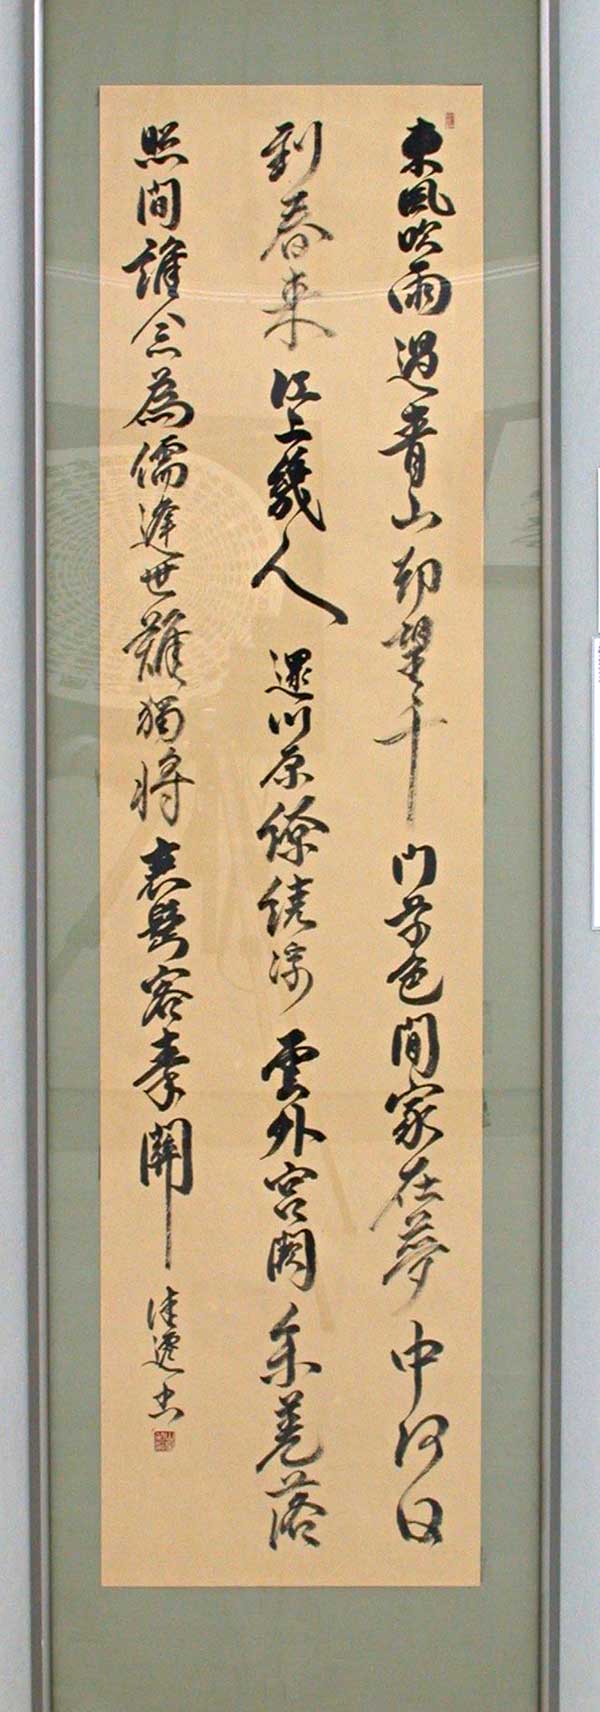 東風吹雨過青山却望千門草色閒家在夢中何日
到春来江上幾人還川原繚繞浮雲外宮闕參差落
照間誰念為儒逢世難獨将衰鬢客秦關